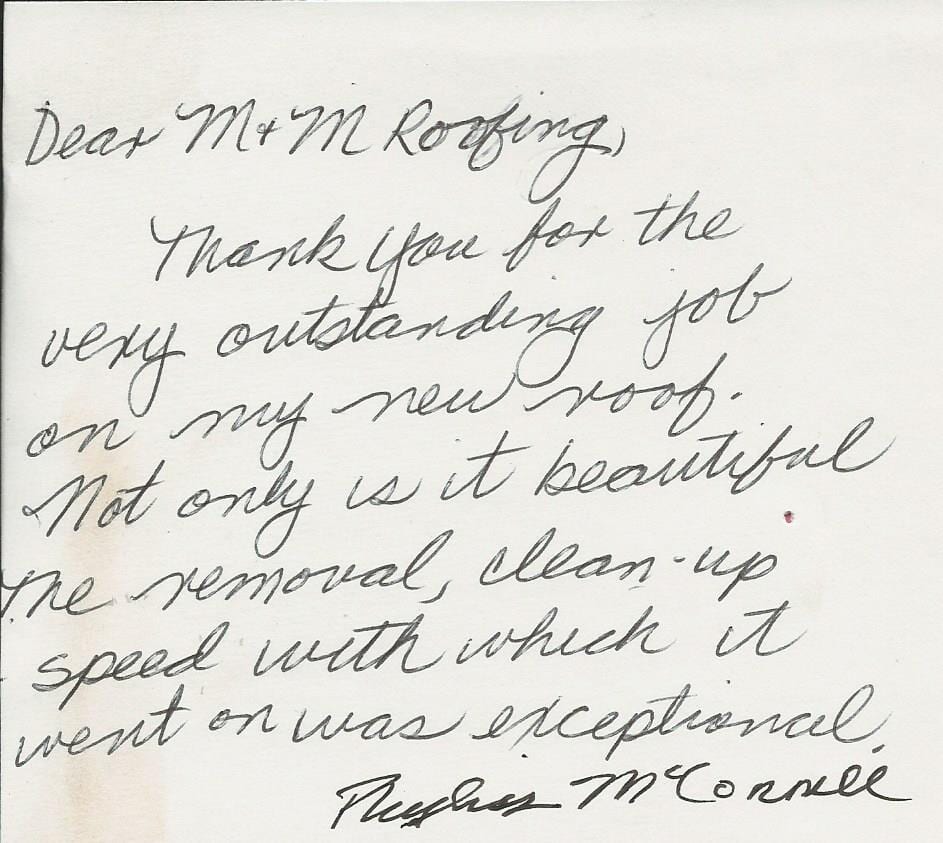 Dear M+M Roofing,
Thank you for the
very outstanding job
on my new roof.
Not only is it beautiful
the removal, clean-up
speed with which it
went on was exceptional.
Phyllis McConnell